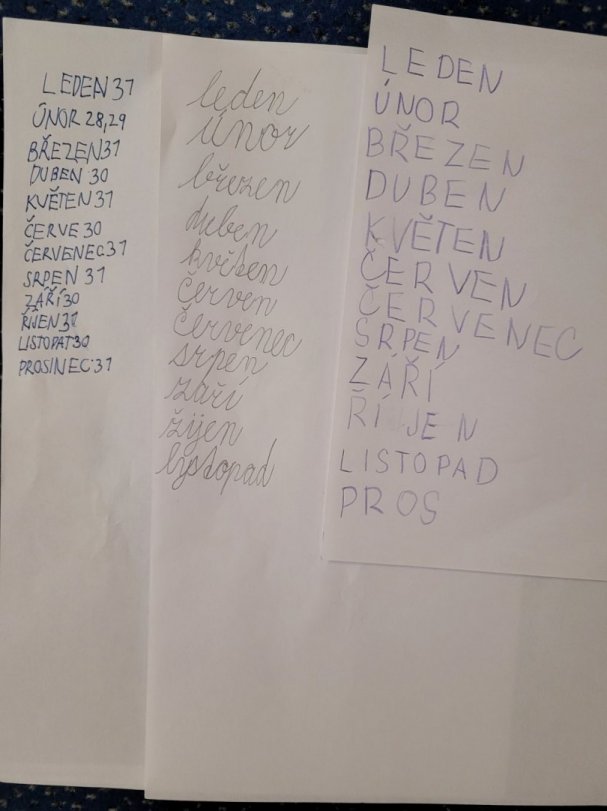 LEDEN 31
ÚNOR 28,29
BŘEZEN 31
DUBEN 30
KVĚTEN 31
ČERVE 30
ČERVENEC 31
SRPEN 31
ZÁŘÍ 30
ŘÍJEN 31
LISTOPAT 30
PROSINEC 31
leden
únor
březen
duben
květen
červen
červenec
srpen
září
žijen
lystopad
LEDEN
ÚNOR
BŘEZEN
DUBEN
KVĚTEN
ČERVEN
ČERVENEC
SRPEN
ZÁŘÍ
ŘÍJEN
LISTOPAD
PROS